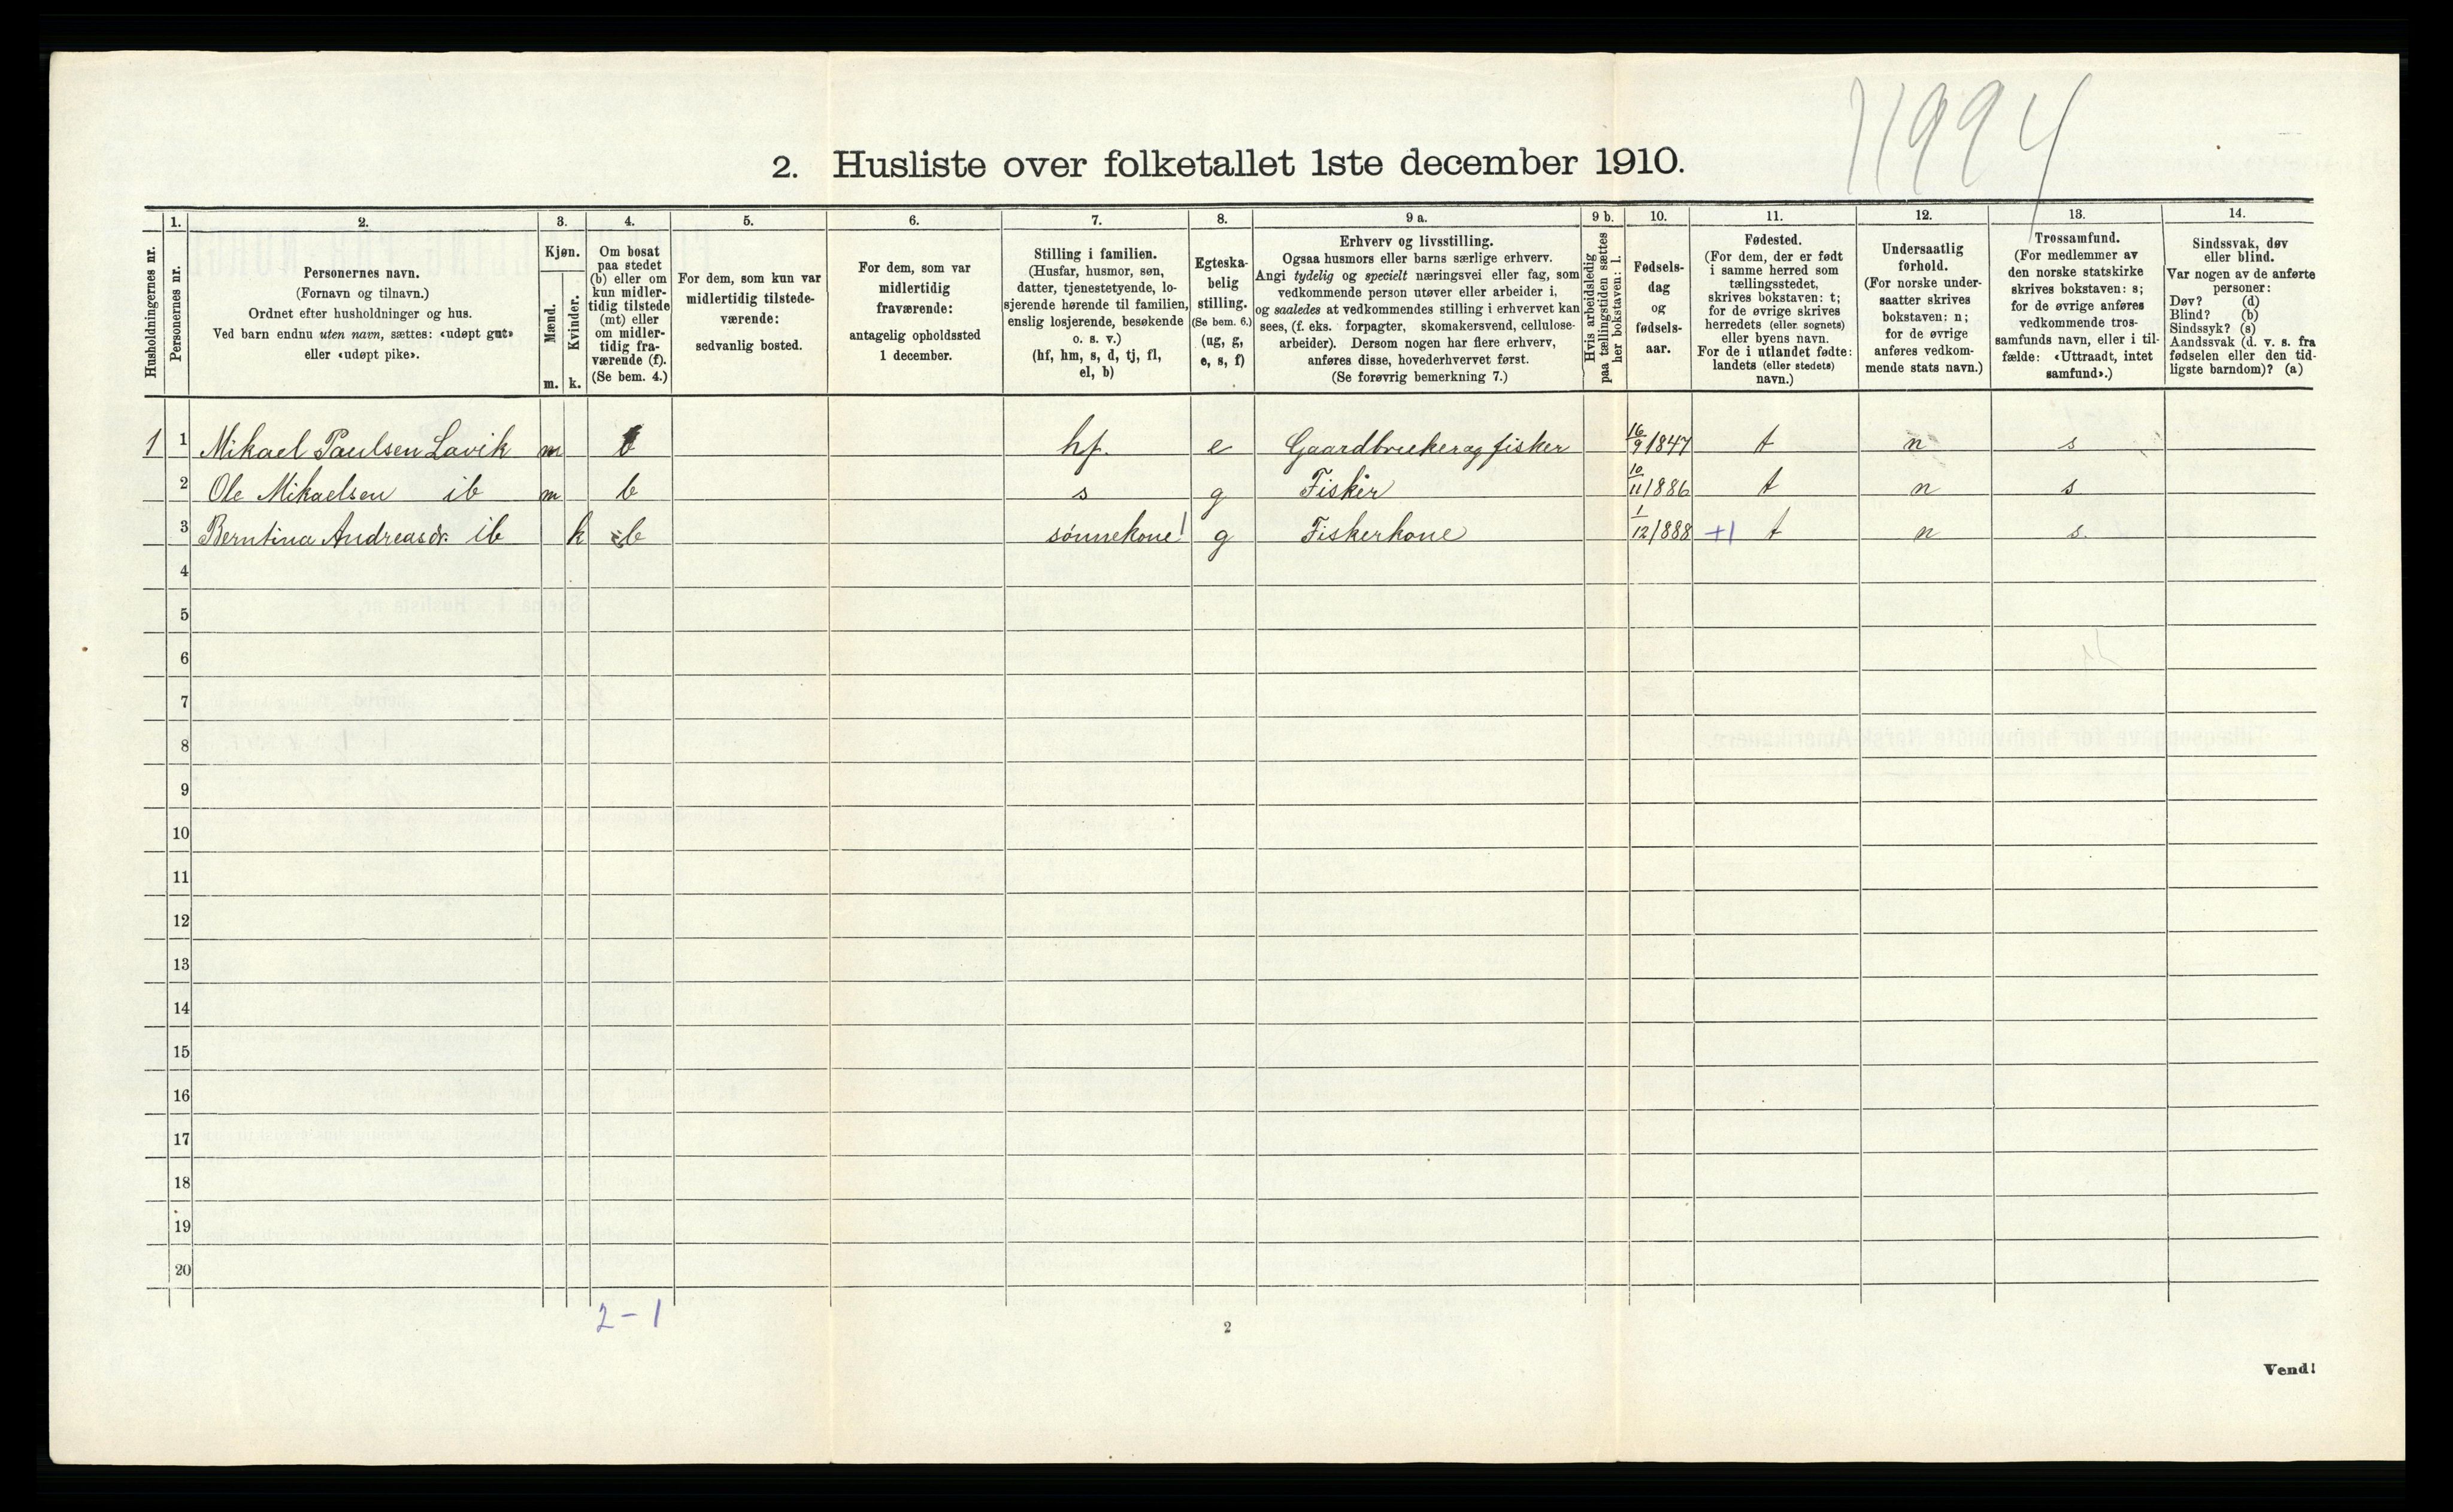 11994
2. Husliste over folketallet 1ste december 1910.
Husholdningernes nr.
1.
Personernes nr.
2.
Personernes navn.
(Fornavn og tilnavn.)
Ordnet efter husholdninger og hus.
Ved barn endnu uten navn, sættes: «udøpt gut»
eller «udøpt pike».
3.
Kjøn.
Mænd.
Kvinder.
m. k.
4.
Om bosat
paa stedet
(b) eller om
kun midler-
tidig tilstede
(mt) eller
om midler-
tidig fra-
værende (f).
(Se bem. 4.)
5.
For dem, som kun var
midlertidig tilstede-
værende:
sedvanlig bosted.
6.
For dem, som var
midlertidig
fraværende:
antagelig opholdssted
1 december.
7.
Stilling i familien.
(Husfar, husmor, søn,
datter, tjenestetyende, lo-
sjerende hørende til familien,
enslig losjerende, besøkende
o. s. v.)
(hf, hm, s, d, tj, fl,
el, b)
8.
Egteska-
belig
stilling.
(Se bem. 6.)
(ug, g,
e, s, f)
9 a.
Erhverv og livsstilling.
Ogsaa husmors eller barns særlige erhverv.
Angi tydelig og specielt næringsvei eller fag, som
vedkommende person utøver eller arbeider i,
og saaledes at vedkommendes stilling i erhvervet kan
sees, (f. eks. forpagter, skomakersvend, cellulose-
arbeider). Dersom nogen har flere erhverv,
anføres disse, hovederhvervet først.
(Se forøvrig bemerkning 7.)
9 b.
Hvis arbeidsledig
paa tællingstiden sættes
her bokstaven: l.
10.
Fødsels-
dag
og
fødsels-
aar.
11.
Fødested.
(For dem, der er født
i samme herred som
tællingsstedet,
skrives bokstaven: t;
for de øvrige skrives
herredets (eller sognets)
eller byens navn.
For de i utlandet fødte:
landets (eller stedets)
navn.)
12.
Undersaatlig
forhold.
(For norske under-
saatter skrives
bokstaven: n;
for de øvrige
anføres vedkom-
mende stats navn.)
13.
Trossamfund.
(For medlemmer av
den norske statskirke
skrives bokstaven: s;
for de øvrige anføres
vedkommende tros-
samfunds navn, eller i til-
fælde: «Uttraadt, intet
samfund».)
14.
Sindssvak, døv
eller blind.
Var nogen av de anførte
personer:
Døv? (d)
Blind? (b)
Sindssyk? (s)
Aandssvak (d. v. s. fra
fødselen eller den tid-
ligste barndom)? (a)
1 1 Mikael Paulsen Lavik m b hf. e Gaardbruker og fisker 16/9 1847 t n s
2 Ole Mikaelsen ib m b s g Fisker 10/11 1886 t n s
3 Berntina Andreasdr. ib k b sønnekone! g Fiskerkone 1/12 1888 +1 t n s.
4
5
6
7
8
9
10
11
12
13
14
15
16
17
18
19
20
2 - 1
2
Vend!